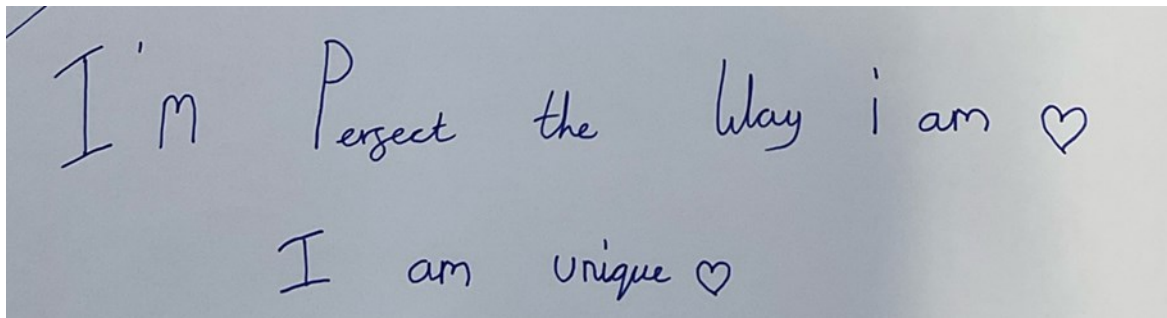 I'm Perfect the Way i am ♡
I am unique ♡